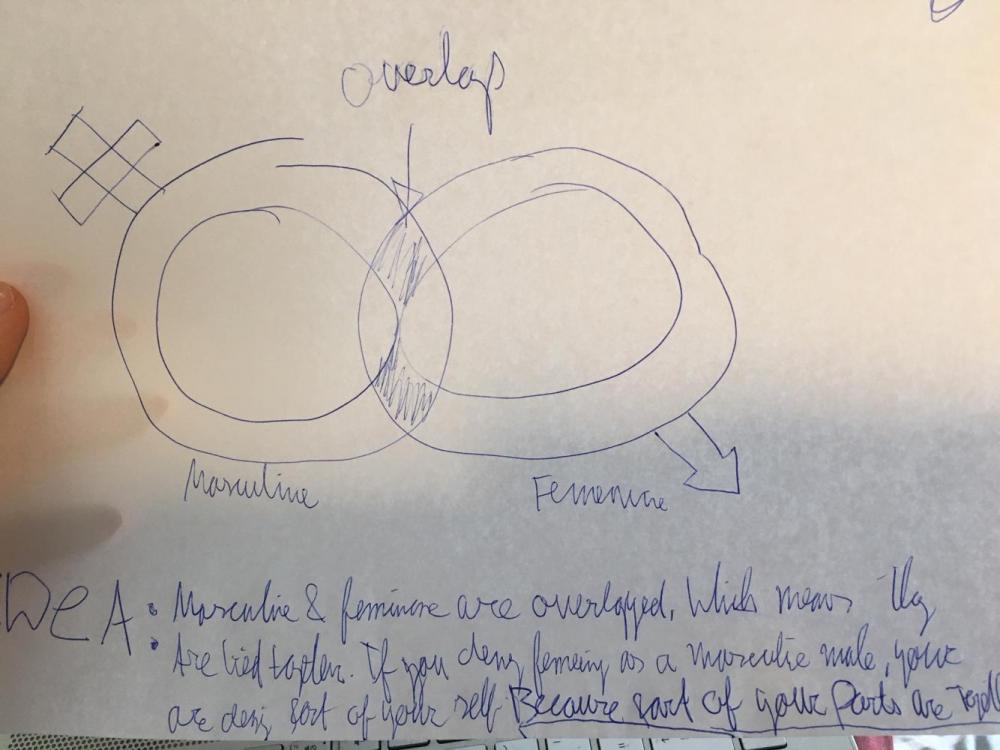 overlap
Masculine
Femenine
IDEA: Masculine & feminine are overlapped, Which means they
Are tied together. If you deny feminity as a masculine male, your
are deny sort of your self Because part of your parts are